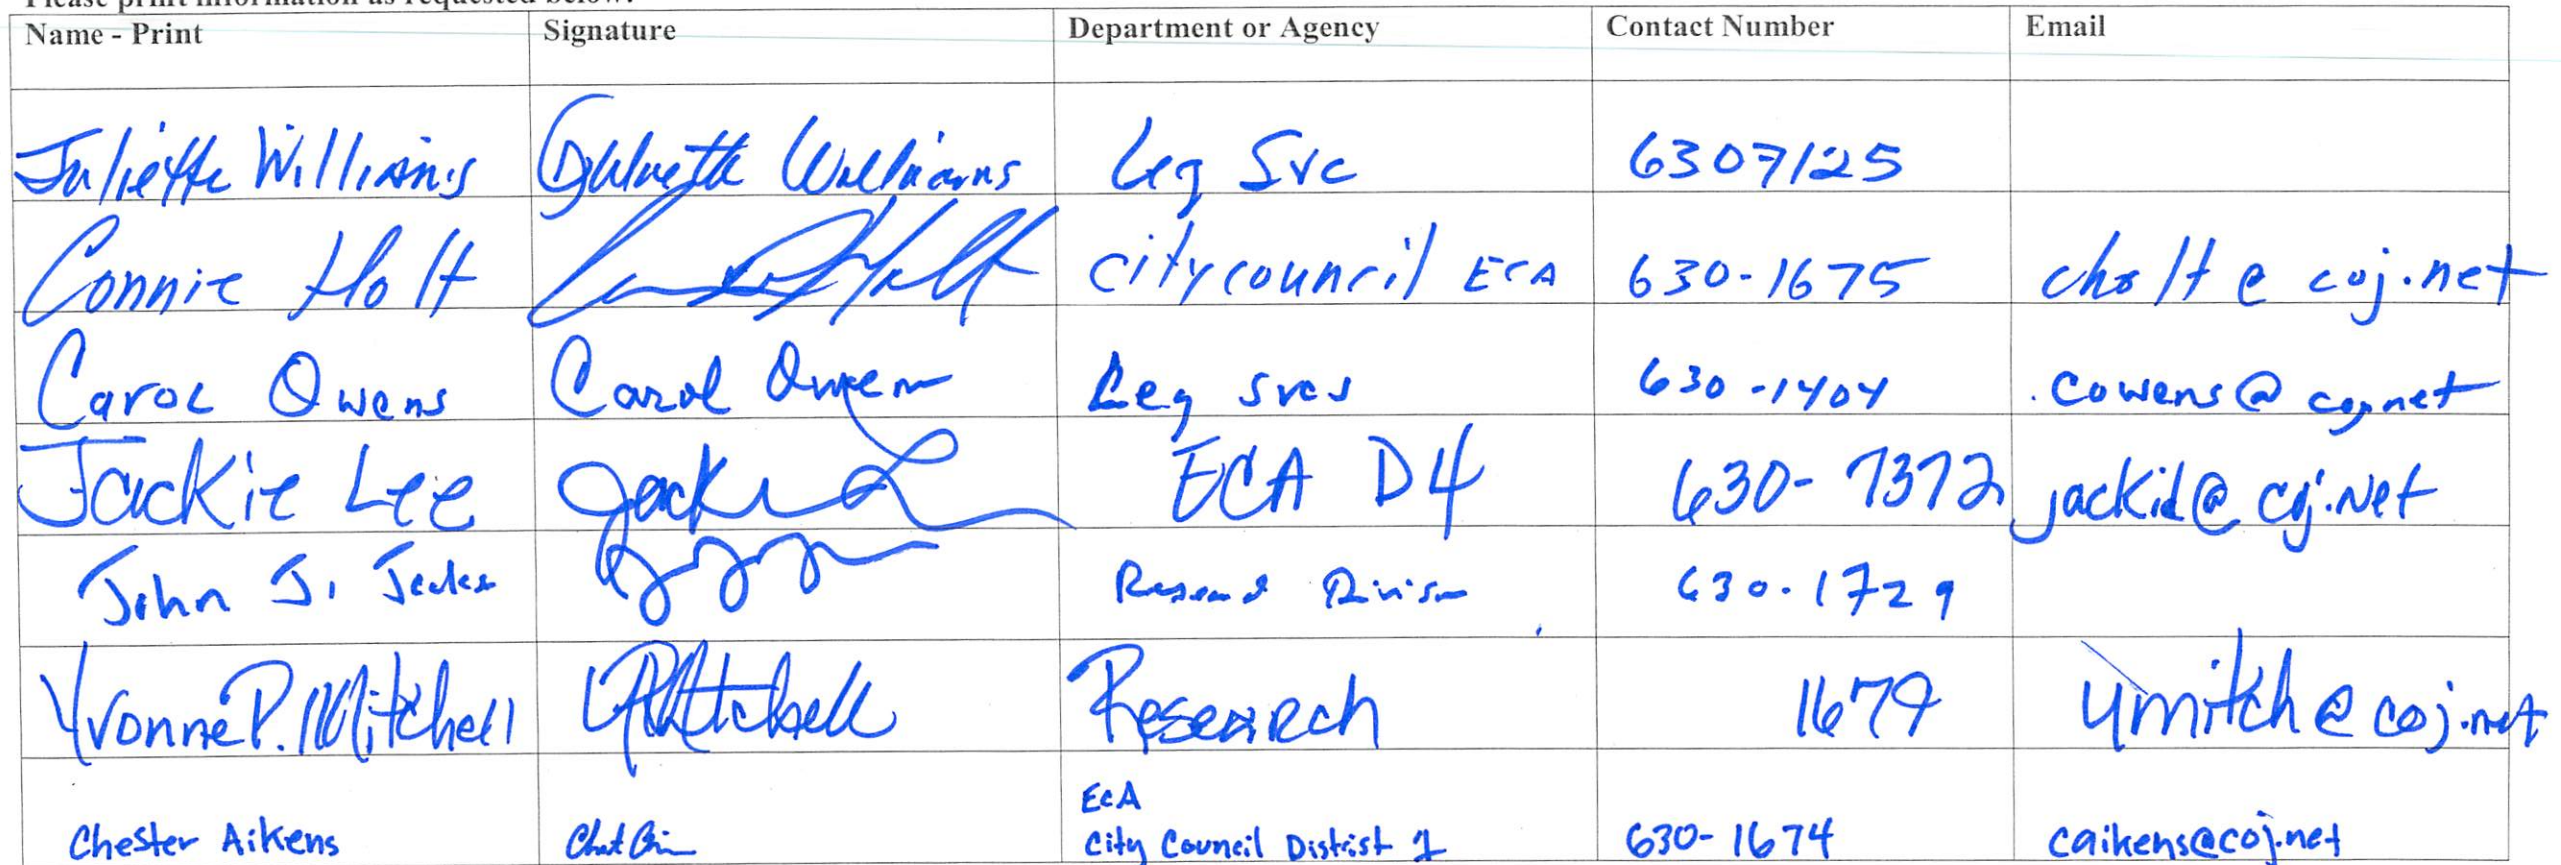 Please print information as requested below.
Name - Print Signature Department or Agency Contact Number Email
Juliette Williams Juliette Williams Leg Svc 6307125
Connie Holt Holt City council ECA 630-1675 cholt@coj.net
Carol Owens Carol Owen Leg svcs 630-1404 cowens@coj.net
Jackie Lee Jackie L ECA D4 630-7372 @coj.net
John J. 630.1729
Yvonne P. Mitchell Mitchell Research 1679 ymitch@coj.net
ECA
Chester Aikens City Council District 1 630-1674 caikens@coj.net